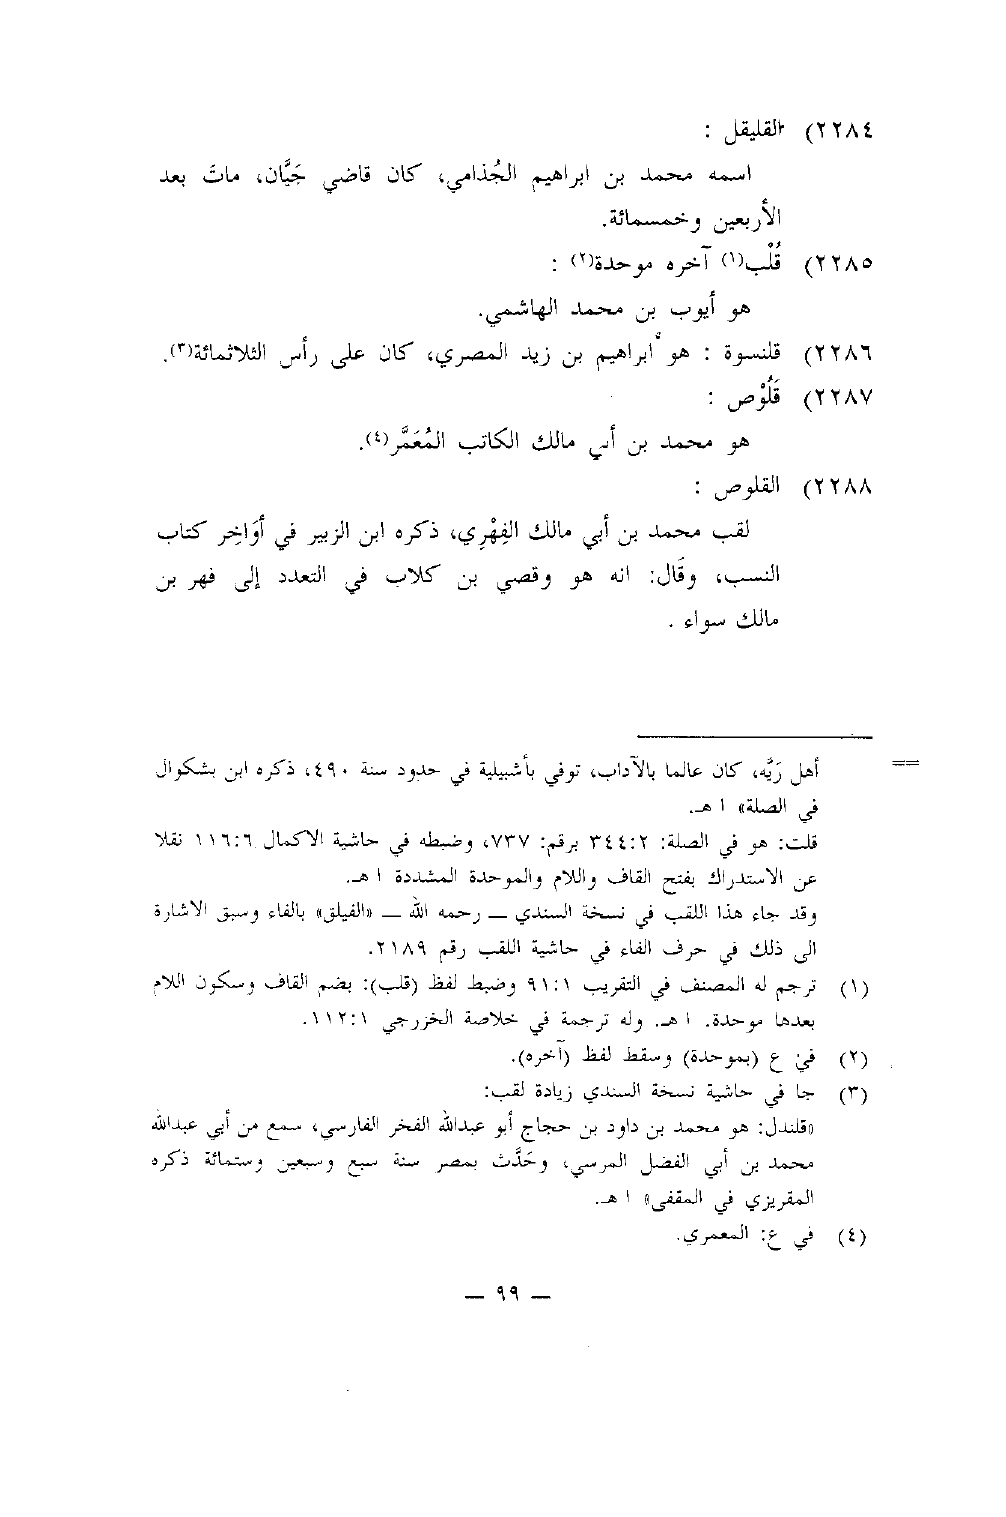 ٢٢٨٤) القليقل :
اسمه محمد بن ابراهيم الجُذامي، كان قاضي جَيَّان، ماتَ بعد
الأربعين وخمسمائة.
٢٢٨٥) قُلْب(١) آخره موحدة(٢) :
هو أيوب بن محمد الهاشمي.
٢٢٨٦) قلنسوة : هو ابراهيم بن زيد المصري، كان على رأس الثلاثمائة(٣).
٢٢٨٧) قَلُوْص :
هو محمد بن أبي مالك الكاتب المُعَمَّر(٤).
٢٢٨٨) القلوص :
لقب محمد بن أبي مالك الفِهْرِي، ذكره ابن الزبير في أوَاخِر كتاب
النسب، وقَال: انه هو وقصي بن كلاب في التعدد إلى فهر بن
مالك سواء .
== أهل رَيَّه، كان عالما بالآداب، توفي بأشبيلية في حدود سنة ٤٩٠، ذكره ابن بشكوال
في الصلة» ا هـ.
قلت: هو في الصلة: ٣٤٤:٢ برقم: ٧٣٧، وضبطه في حاشية الاكمال ١١٦:٦ نقلا
عن الاستدراك بفتح القاف واللام والموحدة المشددة ا هـ.
وقد جاء هذا اللقب في نسخة السندي ــ رحمه الله ــ «الفيلق» بالفاء وسبق الاشارة
الى ذلك في حرف الفاء في حاشية اللقب رقم ٢١٨٩.
(١) ترجم له المصنف في التقريب ٩١:١ وضبط لفظ (قلب): بضم القاف وسكون اللام
بعدها موحدة. ا هـ. وله ترجمة في خلاصة الخزرجي ١١٢:١.
(٢) في ع (بموحدة) وسقط لفظ (آخره).
(٣) جا في حاشية نسخة السندي زيادة لقب:
«قلندل: هو محمد بن داود بن حجاج أبو عبدالله الفخر الفارسي، سمع من أبي عبدالله
محمد بن أبي الفضل المرسي، وحَدَّث بمصر سنة سبع وسبعين وستمائة ذكره
المقريزي في المقفى» ا هـ.
(٤) في ع: المعمري.
ــ ٩٩ ــ